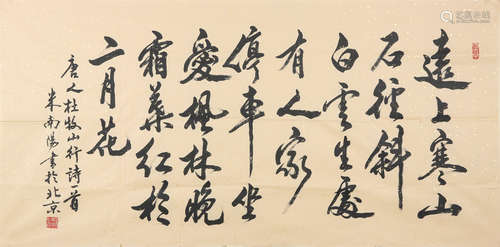 遠上寒山
石徑斜
白雲生處
有人家
停車坐
愛楓林晚
霜葉紅於
二月花
唐人杜牧山行詩一首
米南陽書於北京